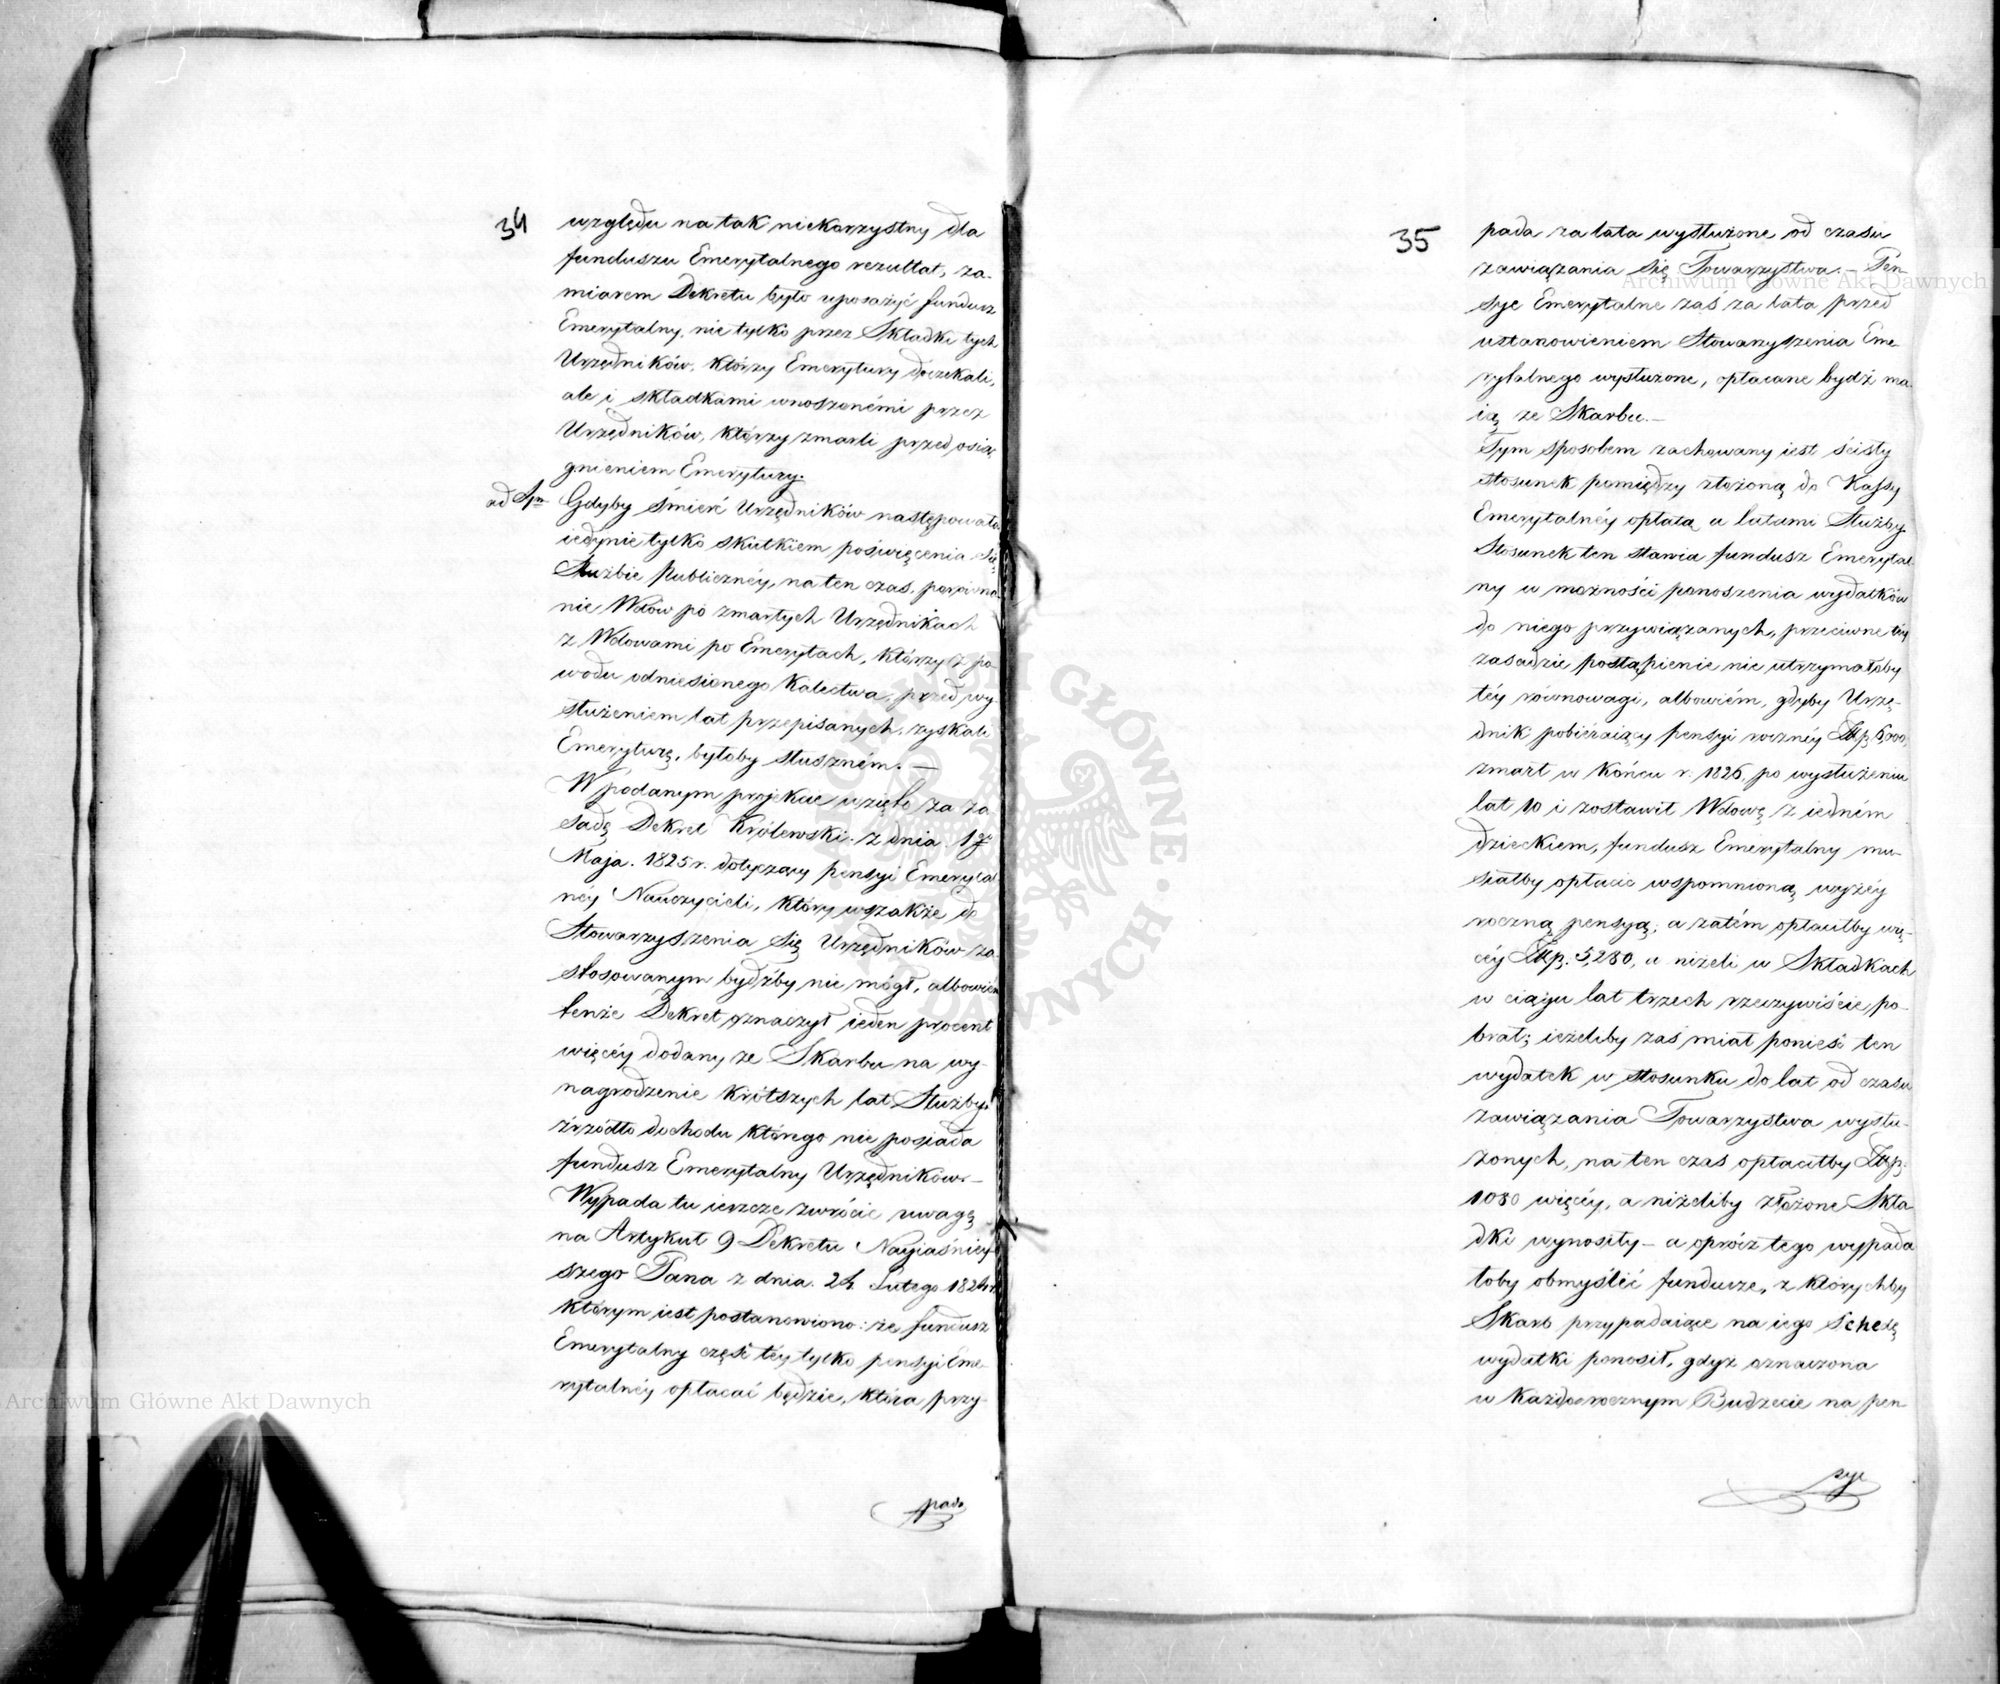 34
względu na tak niekorzystny dla
funduszu Emerytalnego rezultat, za-
miarem Dekretu było uposażyć fundusz
Emerytalny, nie tylko przez Składki tych
Urzędników, którzy Emerytury doczekali,
ale i składkami wnoszonémi przez
Urzędników, którzy zmarli przed osią
gnieniem Emerytury.
ad
Gdyby śmierć Urzędników następowała
iedynie tylko skutkiem poświęcenia się
Służbie Publicznéy, na ten czas, porówna
nie Wdów po zmarłych Urzędnikach
z Wdowami po Emerytach, którzy z po-
wodu odniesionego Kalectwa, przed wy-
służeniem lat przepisanych, zyskali
Emeryturę, byłoby słuszném. —
W podanym projekcie wzięto za za
sadę Dekret Królewski z dnia 19
Maja. 1825 r. dotyczący pensyi Emerytal
néy Nauczycieli, który wszakże do
Stowarzyszenia się Urzędników za-
stosowanym bydźby nie mógł, albowiém
tenże Dekret oznaczył ieden procent
więcéy dodany ze Skarbu na wy-
nagrodzenie krótszych lat Służby;
źrzódło dochodu którego nie posiada
fundusz Emerytalny Urzędników. —
Wypada tu ieszcze zwrócić uwagę
na Artykuł 9 Dekretu Nayiaśniey-
szego Pana z dnia. 24. Lutego 1824 r.
którym iest postanowiono: że fundusz
Emerytalny część téy tylko pensyi Eme-
rytalnéy opłacać będzie, która przy-
pada
35
pada za lata wysłużone od czasu
zawiązania się Towarzystwa. — Pen-
sye Emerytalne zaś za lata przed
ustanowieniem Stowarzyszenia Eme-
rytalnego wysłużone, opłacane bydź ma
ią ze Skarbu. —
Tym sposobem zachowany iest ścisły
stosunek pomiędzy złożoną do Kassy
Emerytalnéy opłatą a latami Służby
Stosunek ten stawia fundusz Emerytal
ny w możności ponoszenia wydatków
do niego przywiązanych, przeciwne téy
zasadzie postąpienie nie utrzymałoby
téy równowagi, albowiém, gdyby Urzę-
dnik pobiéraiący pensyi rocznéy Złp. 6,000,
zmarł w końcu r. 1826, po wysłużeniu
lat 10 i zostawił Wdowę z iedném
dzieckiem, fundusz Emerytalny mu-
siałby opłacić wspomnioną wyżéy
roczną pensyą; a zatém opłaciłby wię-
céy Złp. 5,280, a niżeli w Składkach
w ciągu lat trzech rzeczywiście po-
brał; ieżeliby zaś miał ponieść ten
wydatek w stosunku do lat od czasu
zawiązania Towarzystwa wysłu-
żonych, na ten czas opłaciłby Złp.
1080 więcéy, a niżeliby złożone Skła
dki wynosiły — a oprócz tego wypada
łoby obmyśleć fundusze, z którychby
Skarb przypadaiące na iego Schedę
wydatki ponosił, gdyż oznaczona
w każdorocznym Budżecie na pen
sye
Archiwum Główne Akt Dawnych
Archiwum Główne Akt Dawnych